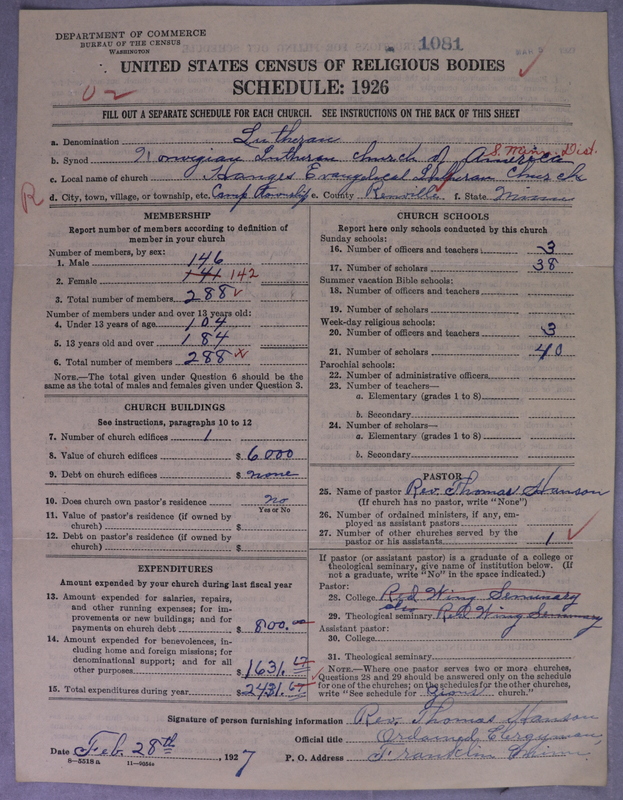 DEPARTMENT OF COMMERCE
BUREAU OF THE CENSUS
WASHINGTON
1081
UNITED STATES CENSUS OF RELIGIOUS BODIES
SCHEDULE: 1926
FILL OUT A SEPARATE SCHEDULE FOR EACH CHURCH. SEE INSTRUCTIONS ON THE BACK OF THIS SHEET
a. Denomination Lutheran
b. Synod Norwegian Lutheran church of America S. Minn. Dist.
c. Local name of church Evangelical Lutheran Church
R d. City, town, village, or township, etc. Camp township e. County Renville f. State Minn
MEMBERSHIP
Report number of members according to definition of
member in your church
Number of members, by sex:
1. Male 146
2. Female 141 142
3. Total number of members 288
Number of members under and over 13 years old:
4. Under 13 years of age 104
5. 13 years old and over 184
6. Total number of members 288
NOTE.—The total given under Question 6 should be the
same as the total of males and females given under Question 3.
CHURCH BUILDINGS
See instructions, paragraphs 10 to 12
7. Number of church edifices 1
8. Value of church edifices $ 6.000
9. Debt on church edifices $ none
10. Does church own pastor's residence no
Yes or No
11. Value of pastor's residence (if owned by
church) $
12. Debt on pastor's residence (if owned by
church) $
EXPENDITURES
Amount expended by your church during last fiscal year
13. Amount expended for salaries, repairs,
and other running expenses; for im-
provements or new buildings; and for
payments on church debt $ 800.
14. Amount expended for benevolences, in-
cluding home and foreign missions; for
denominational support; and for all
other purposes $ 1631.67
15. Total expenditures during year $ 2431.67
CHURCH SCHOOLS
Report here only schools conducted by this church
Sunday schools:
16. Number of officers and teachers 3
17. Number of scholars 38
Summer vacation Bible schools:
18. Number of officers and teachers
19. Number of scholars
Week-day religious schools:
20. Number of officers and teachers 3
21. Number of scholars 40
Parochial schools:
22. Number of administrative officers
23. Number of teachers—
a. Elementary (grades 1 to 8)
b. Secondary
24. Number of scholars—
a. Elementary (grades 1 to 8)
b. Secondary
PASTOR
25. Name of pastor Rev. Thomas Hanson
(If church has no pastor, write "None")
26. Number of ordained ministers, if any, em-
ployed as assistant pastors
27. Number of other churches served by the
pastor or his assistants 1
If pastor (or assistant pastor) is a graduate of a college or
theological seminary, give name of institution below. (If
not a graduate, write "No" in the space indicated.)
Pastor:
28. College Red Wing Seminary
29. Theological seminary also Red Wing Seminary
Assistant pastor:
30. College
31. Theological seminary
NOTE.—Where one pastor serves two or more churches,
Questions 28 and 29 should be answered only on the schedule
for one of the churches; on the schedules for the other churches,
write "See schedule for Zions church."
Signature of person furnishing information Rev. Thomas Hanson
Official title Ordained Clergyman,
Date Feb. 28th, 1927 P. O. Address Franklin Minn.
8—5518 a